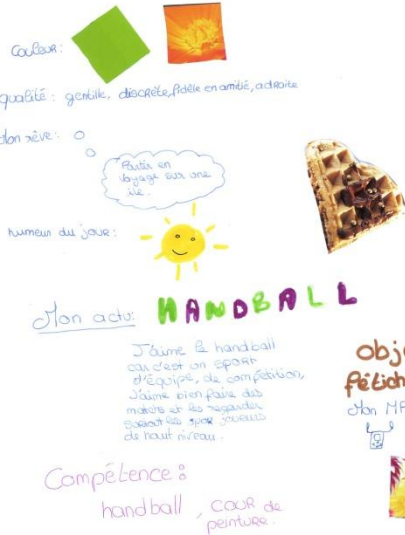 Couleur:
qualité: gentille, discrète, fidèle en amitié, adroite
Mon rêve:
Partir en
voyage sur une
île.
humeur du jour:
Mon actu: HANDBALL
J'aime le handball
car c'est un sport
d'équipe, de compétition,
J'aime bien faire des
matchs et les regarder
de haut niveau.
Obje
fétich
Mon MP
Compétence:
handball, cour de
peinture.